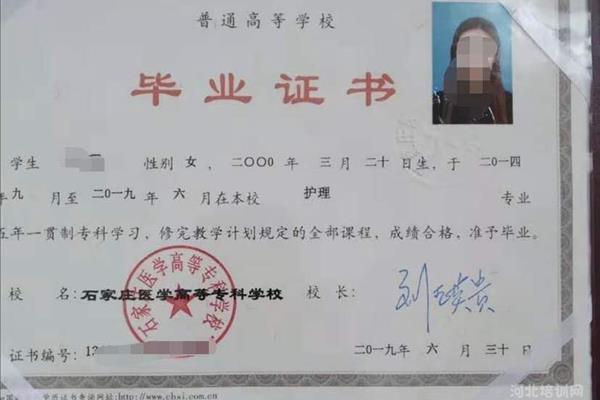 普通高等学校
毕业证书
学生 性别 女，二〇〇〇年 三月二十日生，于 二〇一四
年九月至二〇一九年 六月在本校 护理 专业
五年一贯制专科学习，修完教学计划规定的全部课程，成绩合格，准予毕业。
校 名：石家庄医学高等专科学校 校 长：
石家庄医学高等专科学校
证书编号：13 二〇一九年 六 月 三十日
查询网址:http://www.chsi.com.cn
河北培训网